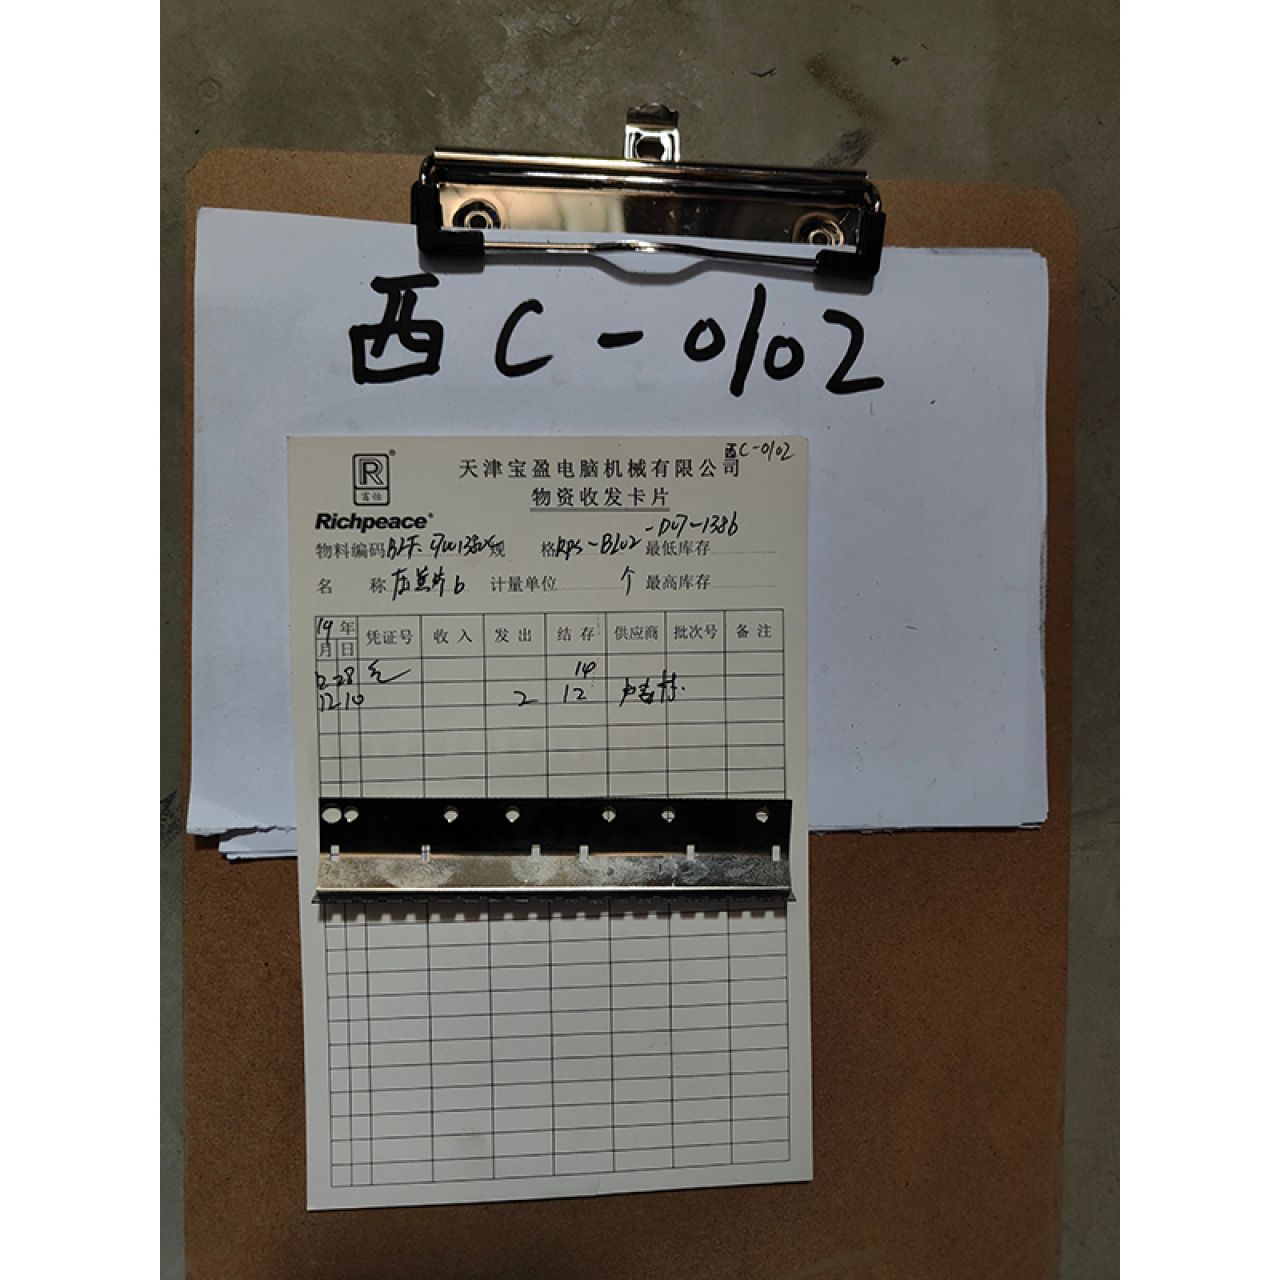 西C-0102
西C-0102
R®
富怡
Richpeace®
天津宝盈电脑机械有限公司
物资收发卡片
-D07-1386
物料编码 规格 RPS-BL02 最低库存
名称 压 片6 计量单位 个 最高库存
19年
月 日 凭证号 收入 发出 结存 供应商 批次号 备注
28 14
12 10 2 12